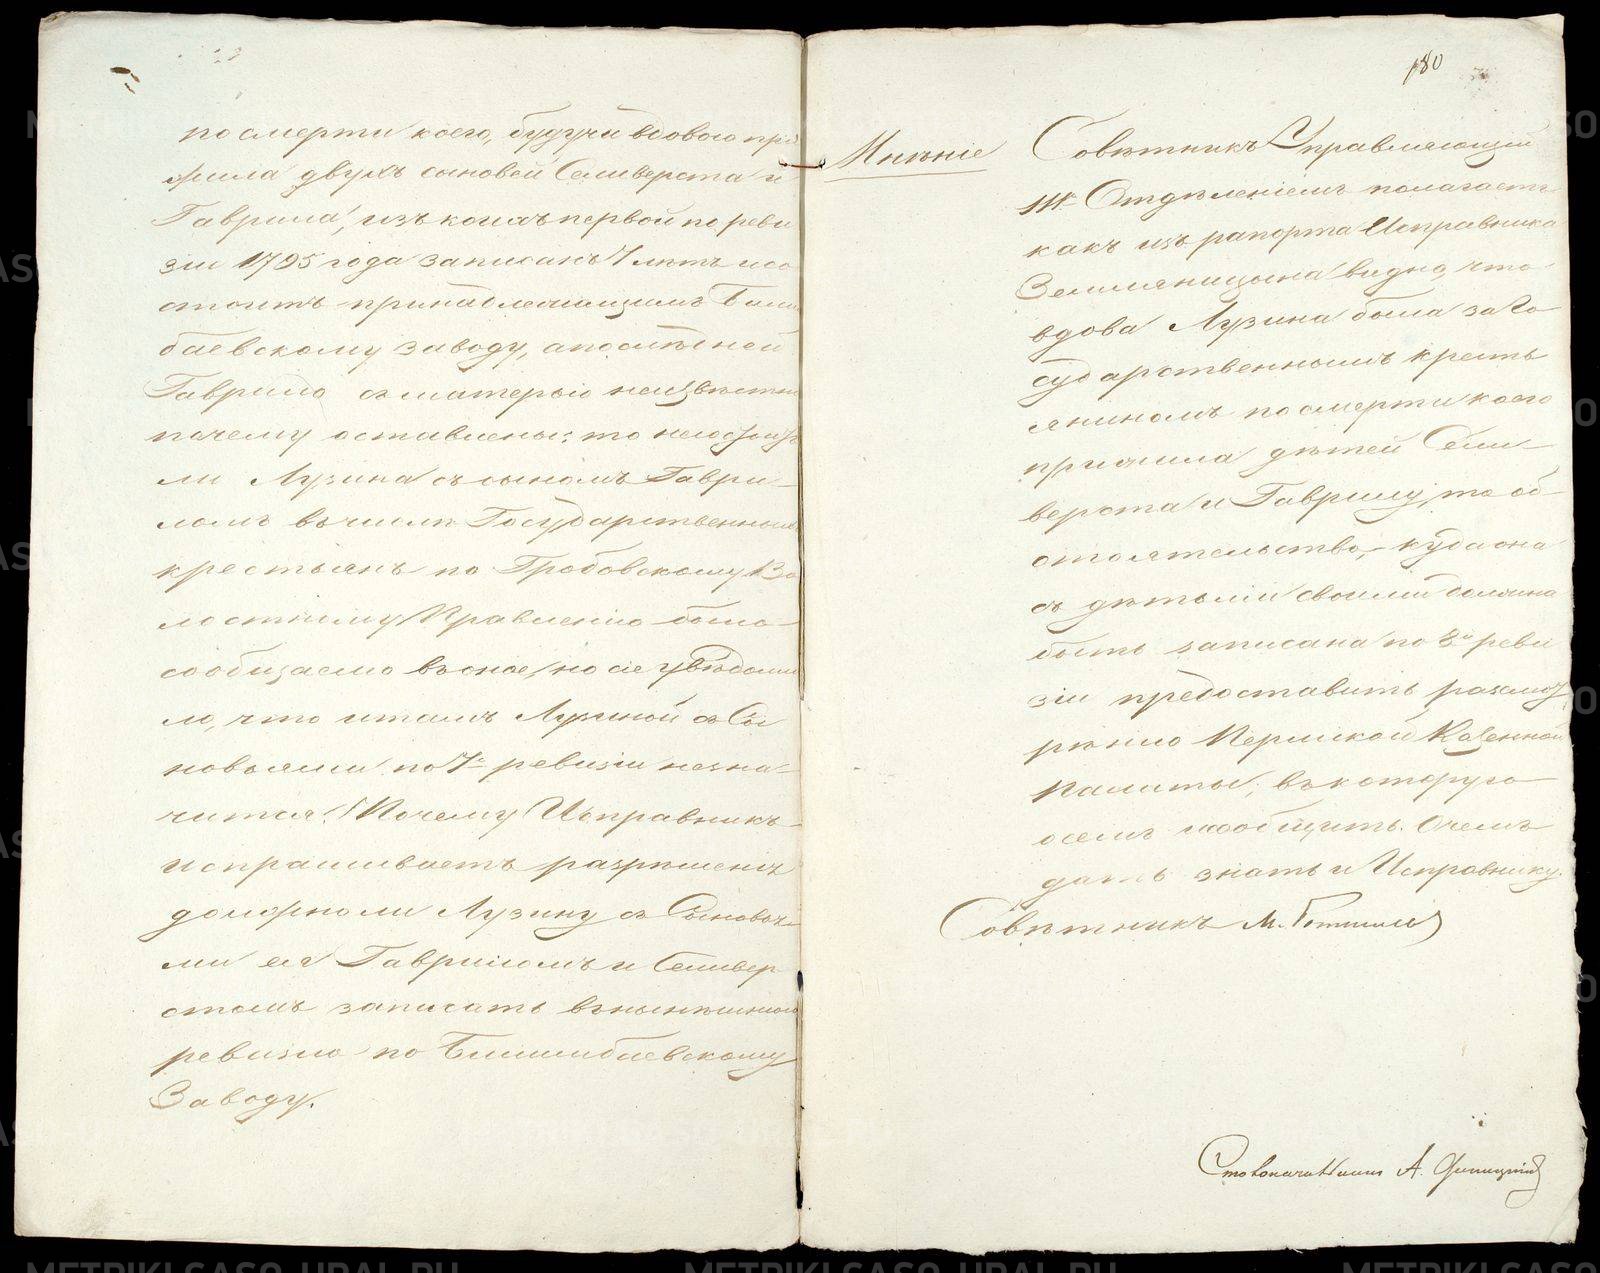 по смерти коего, будучи вдовою при
жила двухъ сыновей Селиверста и
Гаврила, изъ коихъ первой по реви
зіи 1795 года записанъ 7 лѣтъ и со
стоитъ принадлежащимъ Билим
баевскому заводу, а послѣдней
Гаврило съ матерью неизвѣстно
почему оставлены; то
ли Лузина съ сыномъ Гаври-
ломъ въ числѣ Государственныхъ
крестьянъ по Гробовскому Во
лостному Правленію было
сообщаемо въ оное, но сіе увѣдоми
ло, что и тамъ Лузиной съ Сы
новьями по 7й ревизіи незна-
чится. Почему Исправникъ
испрашиваетъ разрѣшенія
должно ли Лузину съ Сыновья-
ми ея Гавриломъ и Селивер
стомъ записать въ нынѣшнюю
ревизію по Билимбаевскому
Заводу.
180
Мнѣніе
Совѣтникъ Управляющій
III Отдѣленіемъ полагаетъ
какъ изъ рапорта Исправника
Земляницына видно, что
вдова Лузина была за Го
сударственнымъ кресть
яниномъ по смерти коего
прижила дѣтей Сели-
верста и Гаврилу, то об-
стоятельство, куда она
съ дѣтьми своими должна
быть записана по 8й реви
зіи предоставить разсмот
рѣнію Пермской Казенной
Палаты, въ которую
о семъ и сообщить. О чемъ
дать знать и Исправнику.
Совѣтникъ М.
Столоначальникъ А.